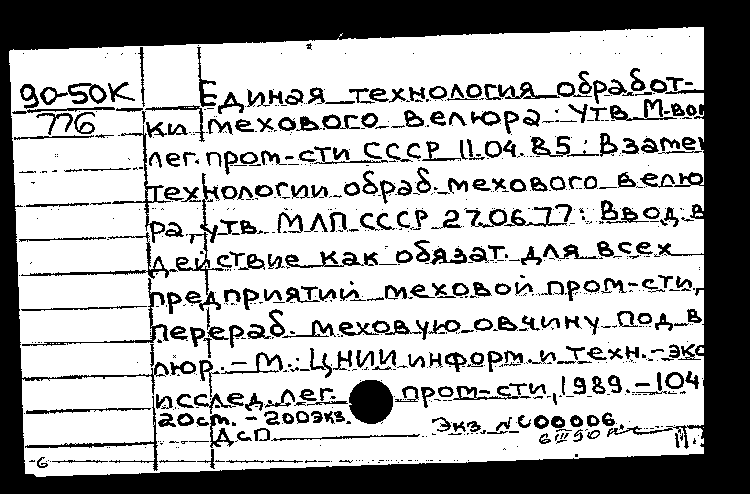 90-50К
776
Единая технология обработ-
ки мехового велюра: Утв. М-вом
лег. пром-сти СССР 11.04.85: Взамен
технологии обраб. мехового велю
ра, утв. МЛП СССР 27.06.77: Ввод. в
действие как обязат. для всех
предприятий меховой пром-сти,
перераб. меховую овчину под в
люр. – М.: ЦНИИ информ. и техн.-эко
исслед. лег. пром-сти, 1989. – 104
20см. – 200экз.
ДСП.
Экз. № 00006.
6